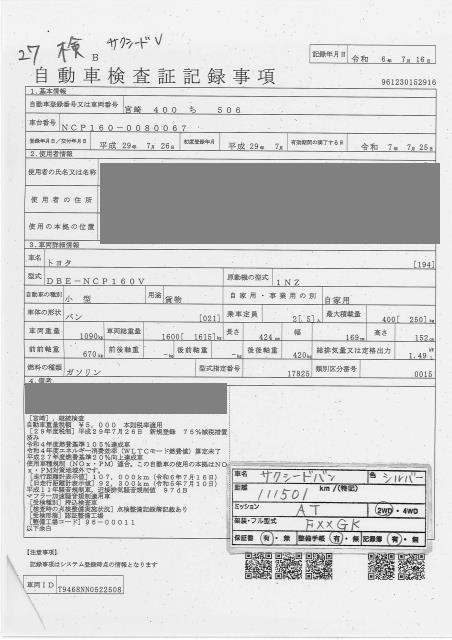 27 検 B サクシードV
記録年月日 令和 6年 7月16日
自動車検査証記録事項
961230152916
1.基本情報
自動車登録番号又は車両番号 宮崎 400 ち 506
車台番号 NCP160-0080067
登録年月日/交付年月日 平成 29年 7月26日 初度登録年月 平成 29年 7月 有効期間の満了する日 令和 7年 7月25日
2.使用者情報
使用者の氏名又は名称
使用者の住所
使用の本拠の位置
3.車両詳細情報
車名 トヨタ [194]
型式 DBE-NCP160V 原動機の型式 1NZ
自動車の種別 小型 用途 貨物 自家用・事業用の別 自家用
車体の形状 バン [021] 乗車定員 2[ 5]人 最大積載量 400[ 250]kg
車両重量 1090kg 車両総重量 1600[ 1615]kg 長さ 424cm 幅 169cm 高さ 152cm
前前軸重 670kg 前後軸重 -kg 後前軸重 -kg 後後軸重 420kg 総排気量又は定格出力 1.49
燃料の種類 ガソリン 型式指定番号 17825 類別区分番号 0015
4.備考
[宮崎],継続検査
自動車重量税額 ¥5,000 本則税率適用
[29年度税制]平成29年7月26日 新規登録 75%減税措置
済み
令和4年度燃費基準105%達成車
令和4年度エネルギー消費効率(WLTCモード燃費値)算定未了
平成27年度燃費基準20%向上達成車
使用車種規制(NOx・PM)適合。この自動車の使用の本拠はNO
x・PM対策地域外です。
[走行距離計表示値]107,000km(令和6年7月16日)
[旧走行距離計表示値]92,300km(令和5年7月10日)
平成11年騒音規制車、近接排気騒音規制値 97dB
マフラー加速騒音規制適用車
[受検種別]持込検査車
[検査時の点検整備実施状況]点検整備記録簿記載あり
[受検形態]認証整備工場
[整備工場コード]96-00011
以下余白
車名 サクシードバン 色 シルバー
距離 111501 km/(特記)
ミッション AT 2WD・4WD
架装・フル型式 FXXGK
保証書 有・無 整備手帳 有・無 記録簿 有・無
[注意事項]
記録事項はシステム登録時点の情報となります
車両ID T9468NN0522508